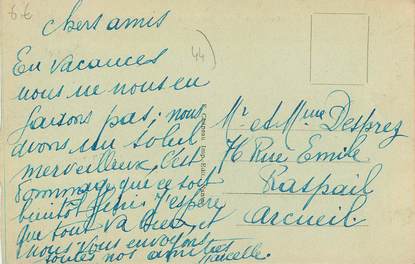 6€
44
Chers amis
En vacances
nous ne nous en
faisons pas, nous
avons un soleil
merveilleux, c'est
dommage que ce soit
bientôt fini j'espère
que tout va bien, et
nous vous envoyons
toutes nos amitiés
Mr et Mme Desprez
76 Rue Emile
Raspail
Arcueil